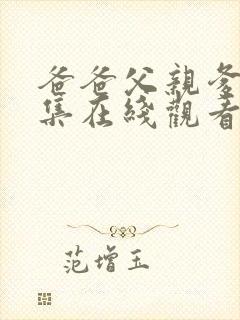 爸爸父親爹
集在綫觀看
范增玉